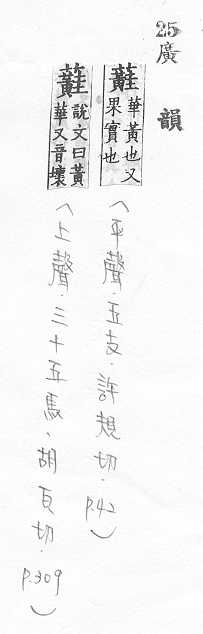 25 廣韻
蘳華黃也又
果實也
(平聲.五支.許規切.p.42)
蘳說文曰黃
華又音壞
(上聲.三十五馬.胡瓦切.p.309)